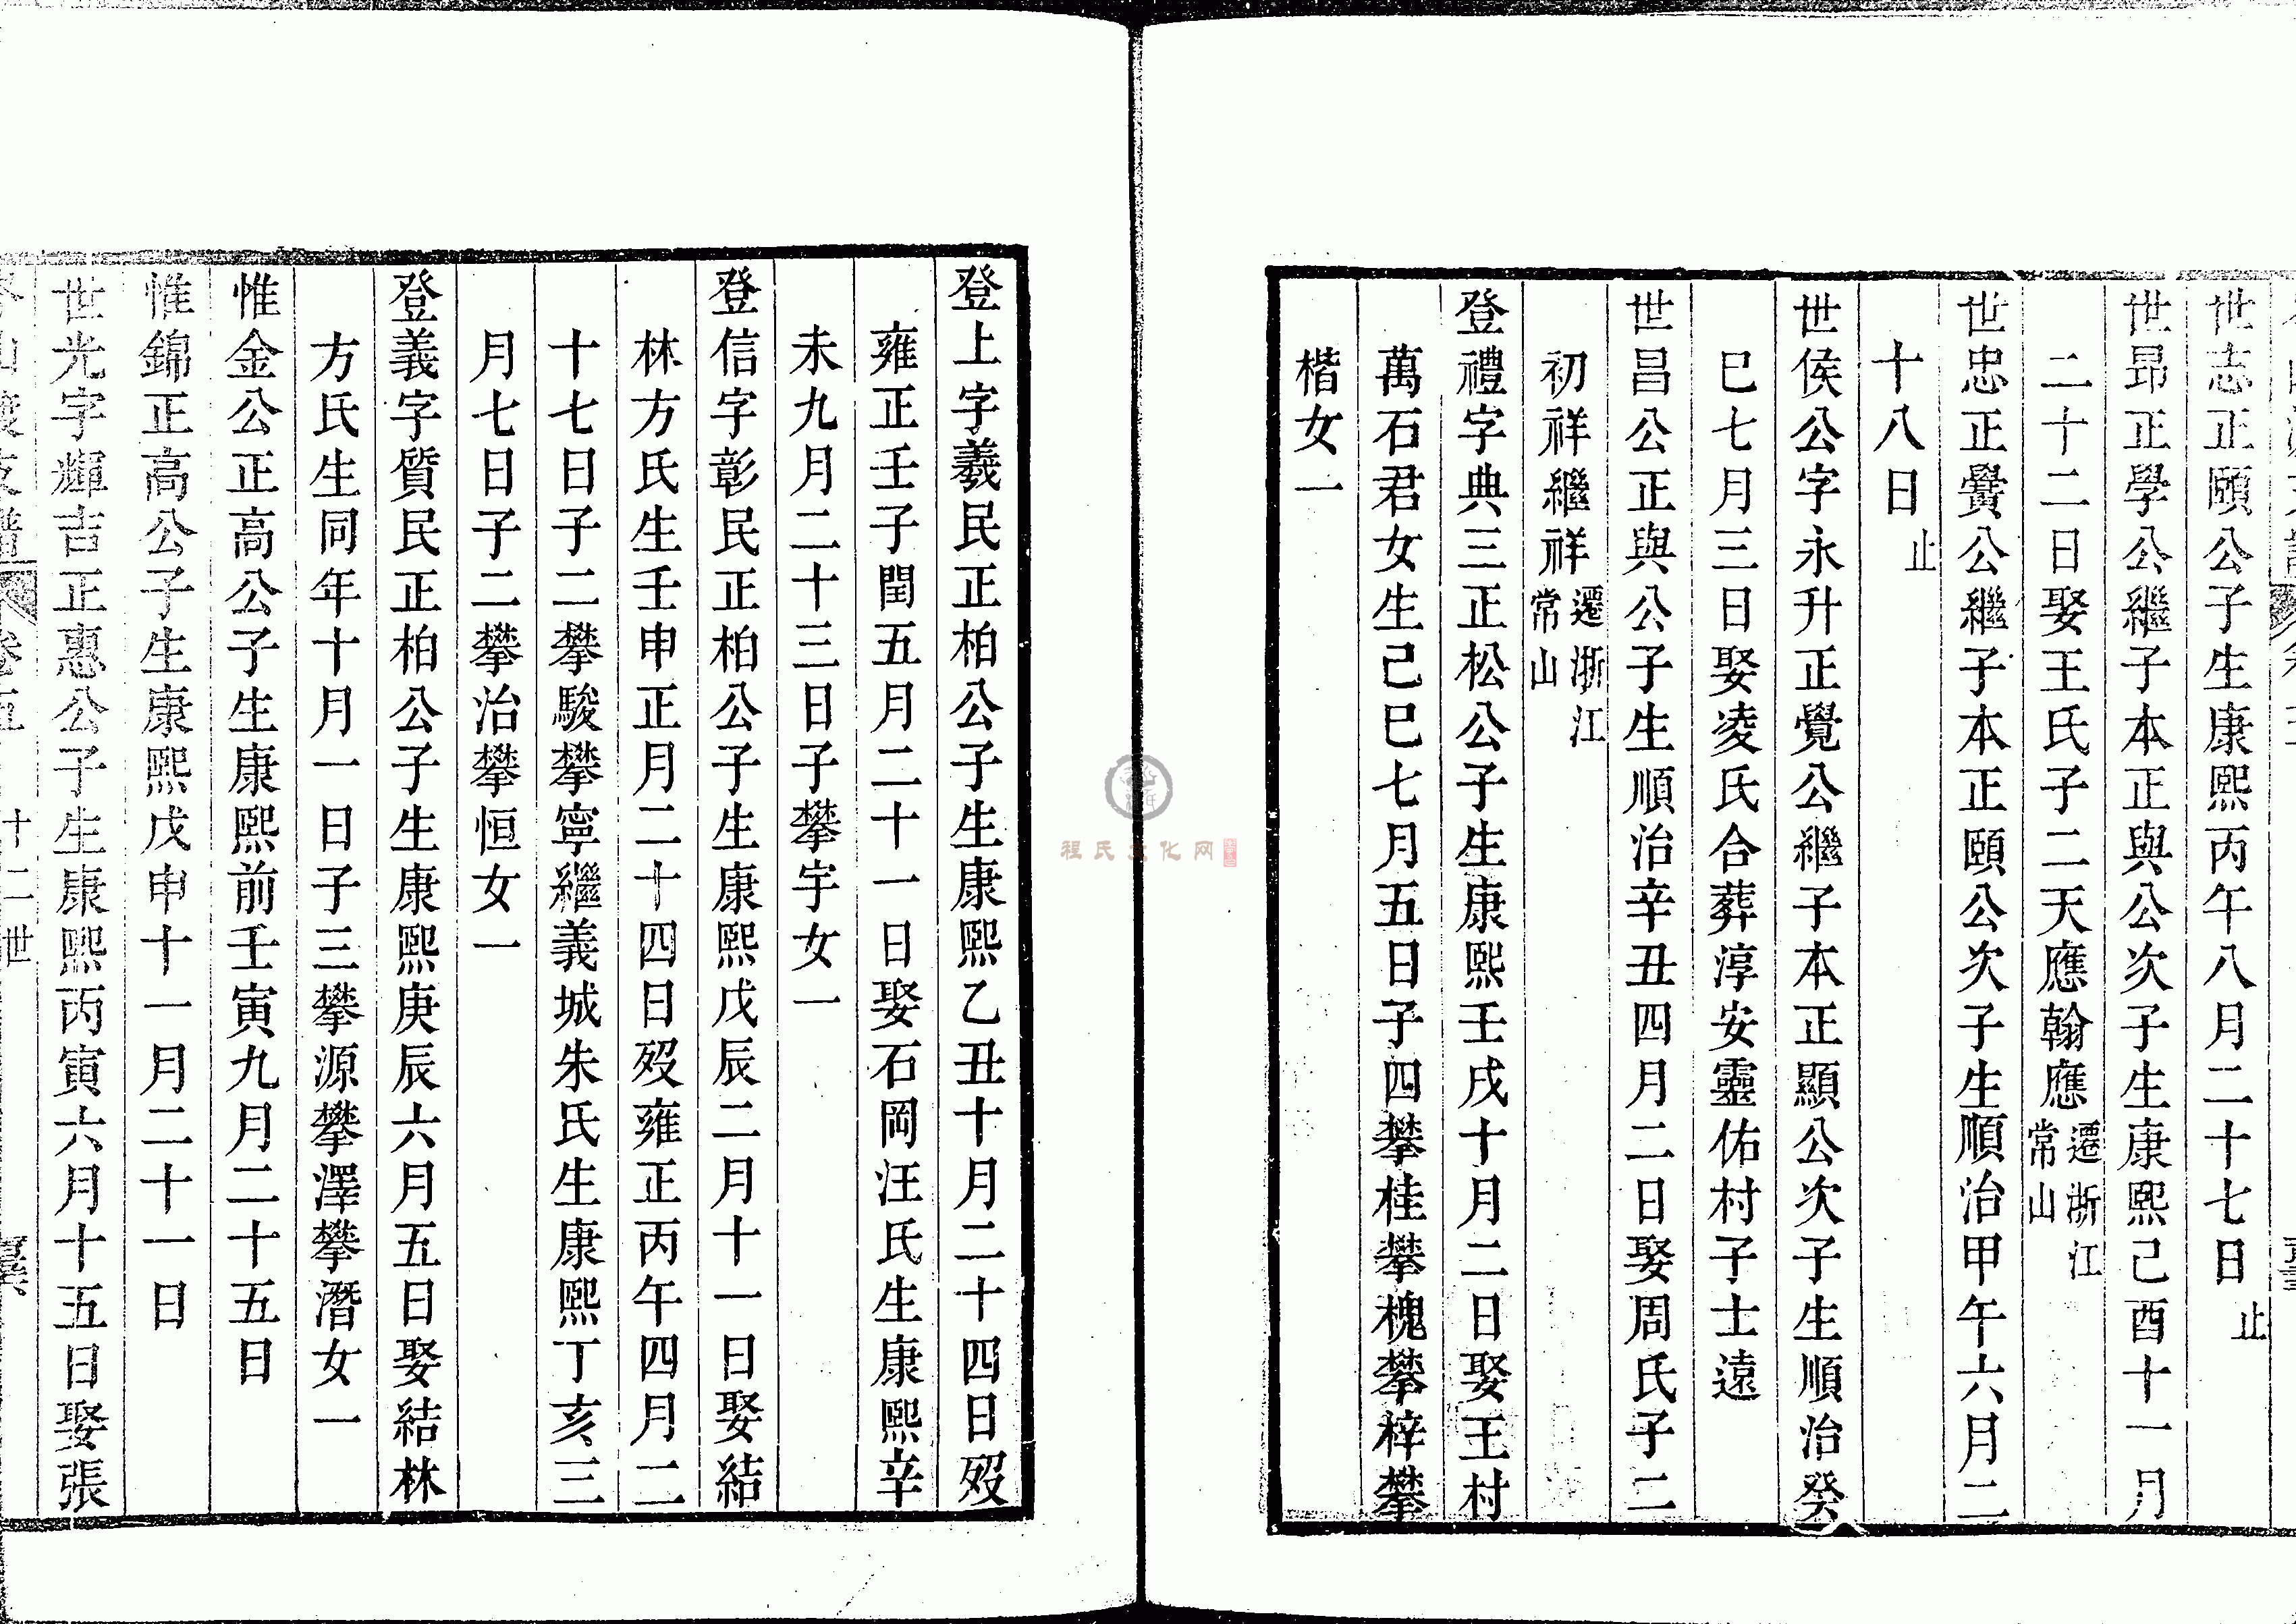 世志正頤公子生康熙丙午八月二十七日止
世昂正學公繼子本正與公次子生康熙己酉十一月
二十二日娶王氏子二天應翰應遷浙江常山
世忠正黌公繼子本正頤公次子生順治甲午六月二
十八日止
世侯公字永升正覺公繼子本正顯公次子生順治癸
巳七月三日娶凌氏合葬淳安靈佑村子士遠
世昌公正與公子生順治辛丑四月二日娶周氏子二
初祥繼祥遷浙江常山
登禮字典三正松公子生康熙壬戌十月二日娶王村
萬石君女生己巳七月五日子四攀桂攀槐攀梓攀
楷女一
登上字羲民正柏公子生康熙乙丑十月二十四日歿
雍正壬子閏五月二十一日娶石岡汪氏生康熙辛
未九月二十三日子攀宇女一
登信字彰民正柏公子生康熙戊辰二月十一日娶結
林方氏生壬申正月二十四日歿雍正丙午四月二
十七日子二攀駿攀寧繼義城朱氏生康熙丁亥三
月七日子二攀治攀恒女一
登義字質民正柏公子生康熙庚辰六月五日娶結林
方氏生同年十月一日子三攀源攀澤攀潛女一
惟金公正高公子生康熙前壬寅九月二十五日
惟錦正高公子生康熙戊申十一月二十一日
世光字輝吉正惠公子生康熙丙寅六月十五日娶張
卷五 十二世
程氏文化网